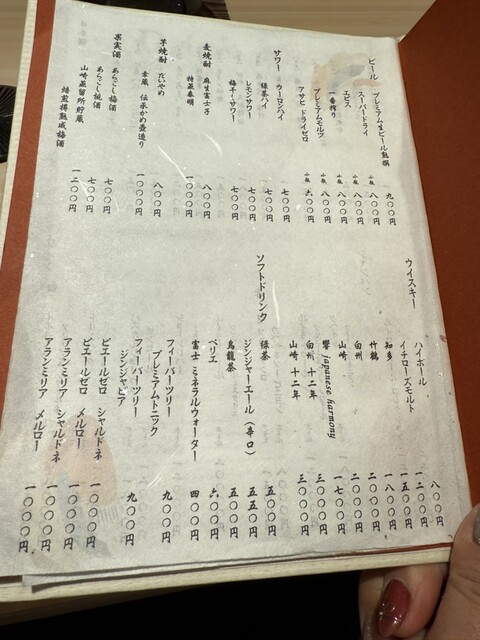 ビール
プレミアム生ビール熟撰 九〇〇円
スーパードライ 小瓶 八〇〇円
エビス 小瓶 八〇〇円
一番搾り 小瓶 八〇〇円
プレミアムモルツ 小瓶 八〇〇円
アサヒ ドライゼロ 小瓶 六〇〇円
サワー ウーロンハイ 七〇〇円
緑茶ハイ 七〇〇円
レモンサワー 七〇〇円
梅干・サワー 七〇〇円
麦焼酎 麻生富士子 八〇〇円
特蒸泰明 一〇〇〇円
芋焼酎 だいやめ 八〇〇円
幸蔵 伝承かめ壺造り 一〇〇〇円
果実酒 あらごし梅酒 七〇〇円
あらごし桃酒 七〇〇円
山崎蒸留所貯蔵
焙煎樽熟成梅酒 一二〇〇円
ウイスキー
ハイボール 八〇〇円
イチローズモルト 一二〇〇円
知多 一五〇〇円
竹鶴 一八〇〇円
白州 二〇〇〇円
山崎 二〇〇〇円
響 japanese harmony 一七〇〇円
白州 十二年 三〇〇〇円
山崎 十二年 三〇〇〇円
ソフトドリンク
緑茶 五〇〇円
ジンジャーエール（辛口） 五五〇円
烏龍茶 五〇〇円
ペリエ 六〇〇円
富士 ミネラルウォーター 四〇〇円
フィーバーツリー
プレミアムトニック 九〇〇円
フィーバーツリー
ジンジャビア 九〇〇円
ピエールゼロ シャルドネ 一〇〇〇円
ピエールゼロ メルロー 一〇〇〇円
アランミリア シャルドネ 一〇〇〇円
アランミリア メルロー 一〇〇〇円